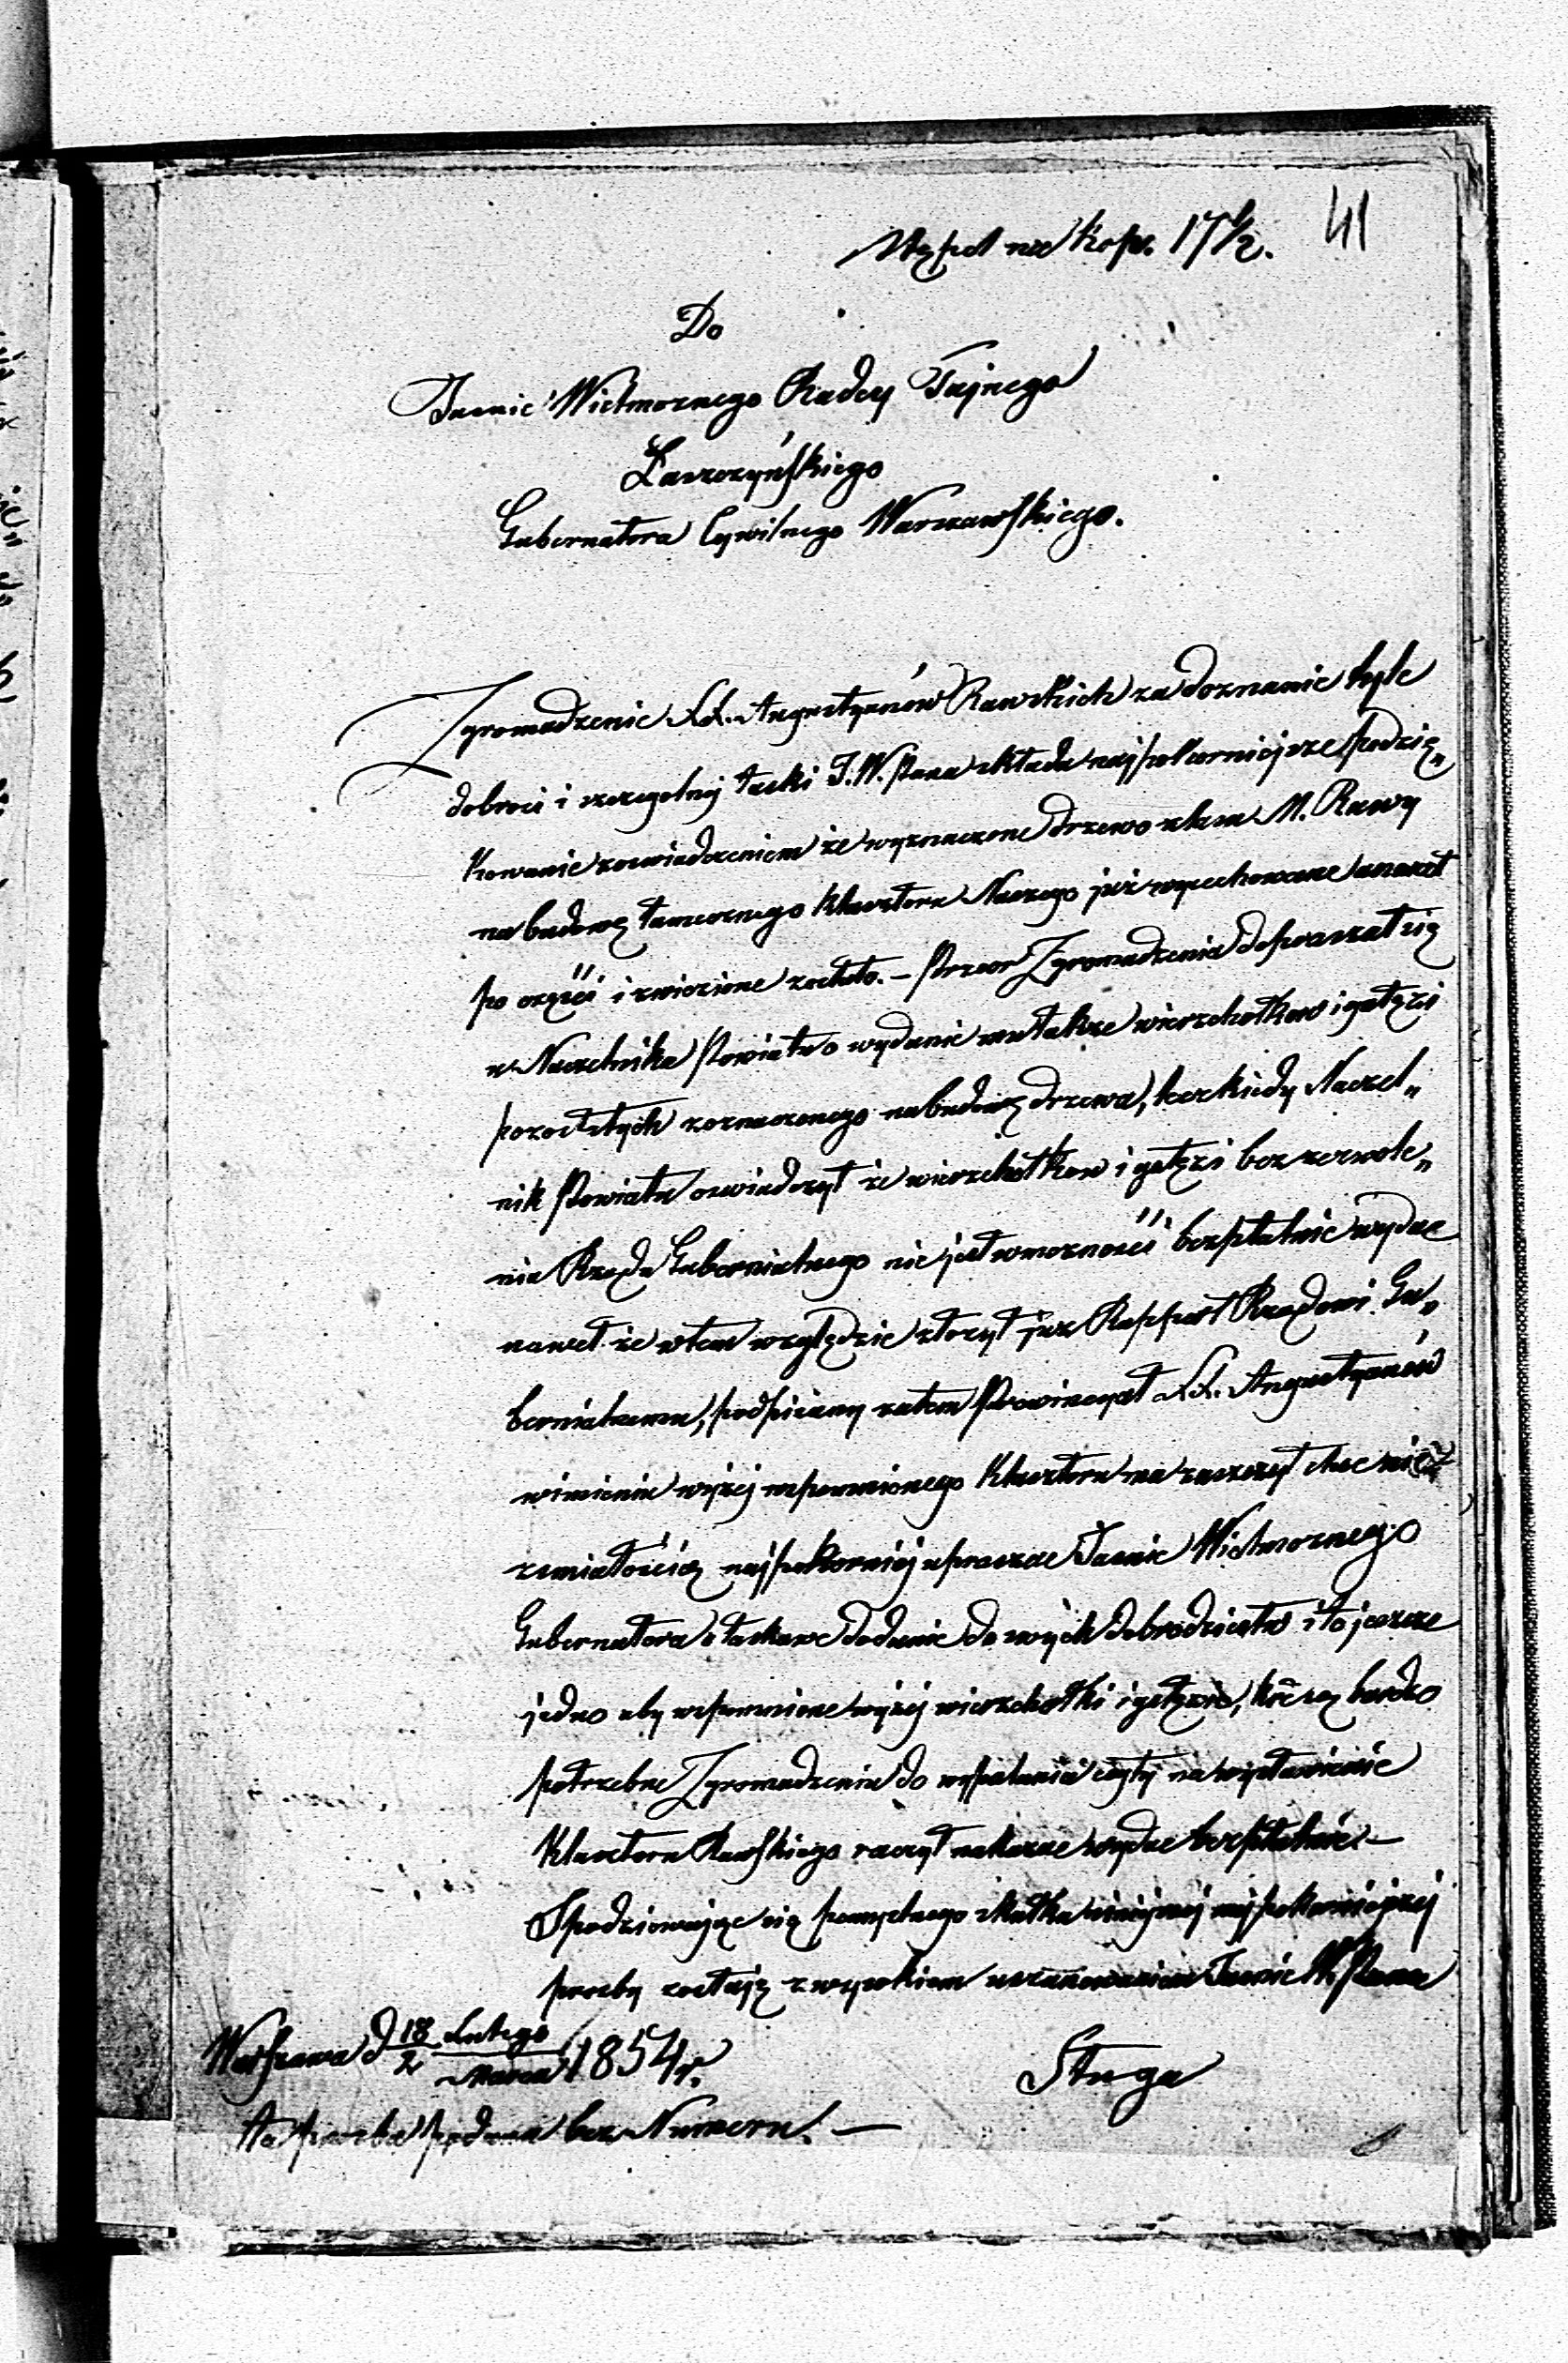 Stępel na kop. 17 1/2. 41
Do
Jasnie Wielmoznego Radcy Tajnego
Łaszczyńskiego
Gubernatora Cywilnego Warszawskiego.
Zgromadzenie XX. Augustyanów Rawskich za doznanie tyle
dobroci i szczegolnej łaski J.W. Pana składa najpokorniejsze podzię„
kowanie zoswiadczeniem że wyznaczone drzewo z lasu M. Rawy
na budowę tamecznego Klasztoru Naszego już wycechowane a nawet
po części i zwiezione zostało. – Przeor Zgromadzenia dopraszał się
u Naczelnika Powiatu o wydanie mu także wierzchołkow i gałęzi
pozostałych zoznaczonego na budowę drzewa, lecz kiedy Naczel„
nik Powiatu oswiadczył że wierzchołkow i gałęzi bez zezwole„
nia Rządu Gubernialnego nie jest wmozności bezpłatnie wydac
nawet że wtem względzie złozył juz Rapport Rządowi Gu„
bernialnemu, podpisany zatem Prowincyał XX. Augustyanów
wimieniu wyżej wspomnionego Klasztoru ma zaszczyt choc nie
zsmiałością najpokorniej upraszac Jasnie Wielmoznego
Gubernatora o łaskawe dodanie do swych dobrodziejstw i to jeszcze
jedno aby wspomnione wyżej wierzchołki i gałęzie, któ są bardzo
potrzebne Zgromadzeniu do wypalania cegły na wystawienie
Klasztoru Rawskiego raczył nakazac wydac bezpłatnie. –
Spodziewając się pomyslnego skutku niniejszej najpokorniejszej
prosby zostaję z wysokiem uszanowaniem Jasnie W. Pana
Warszawa d 18/2 Lutego/Marca 1854 r.
Sługa
Ta prosba podana bez Numeru. –